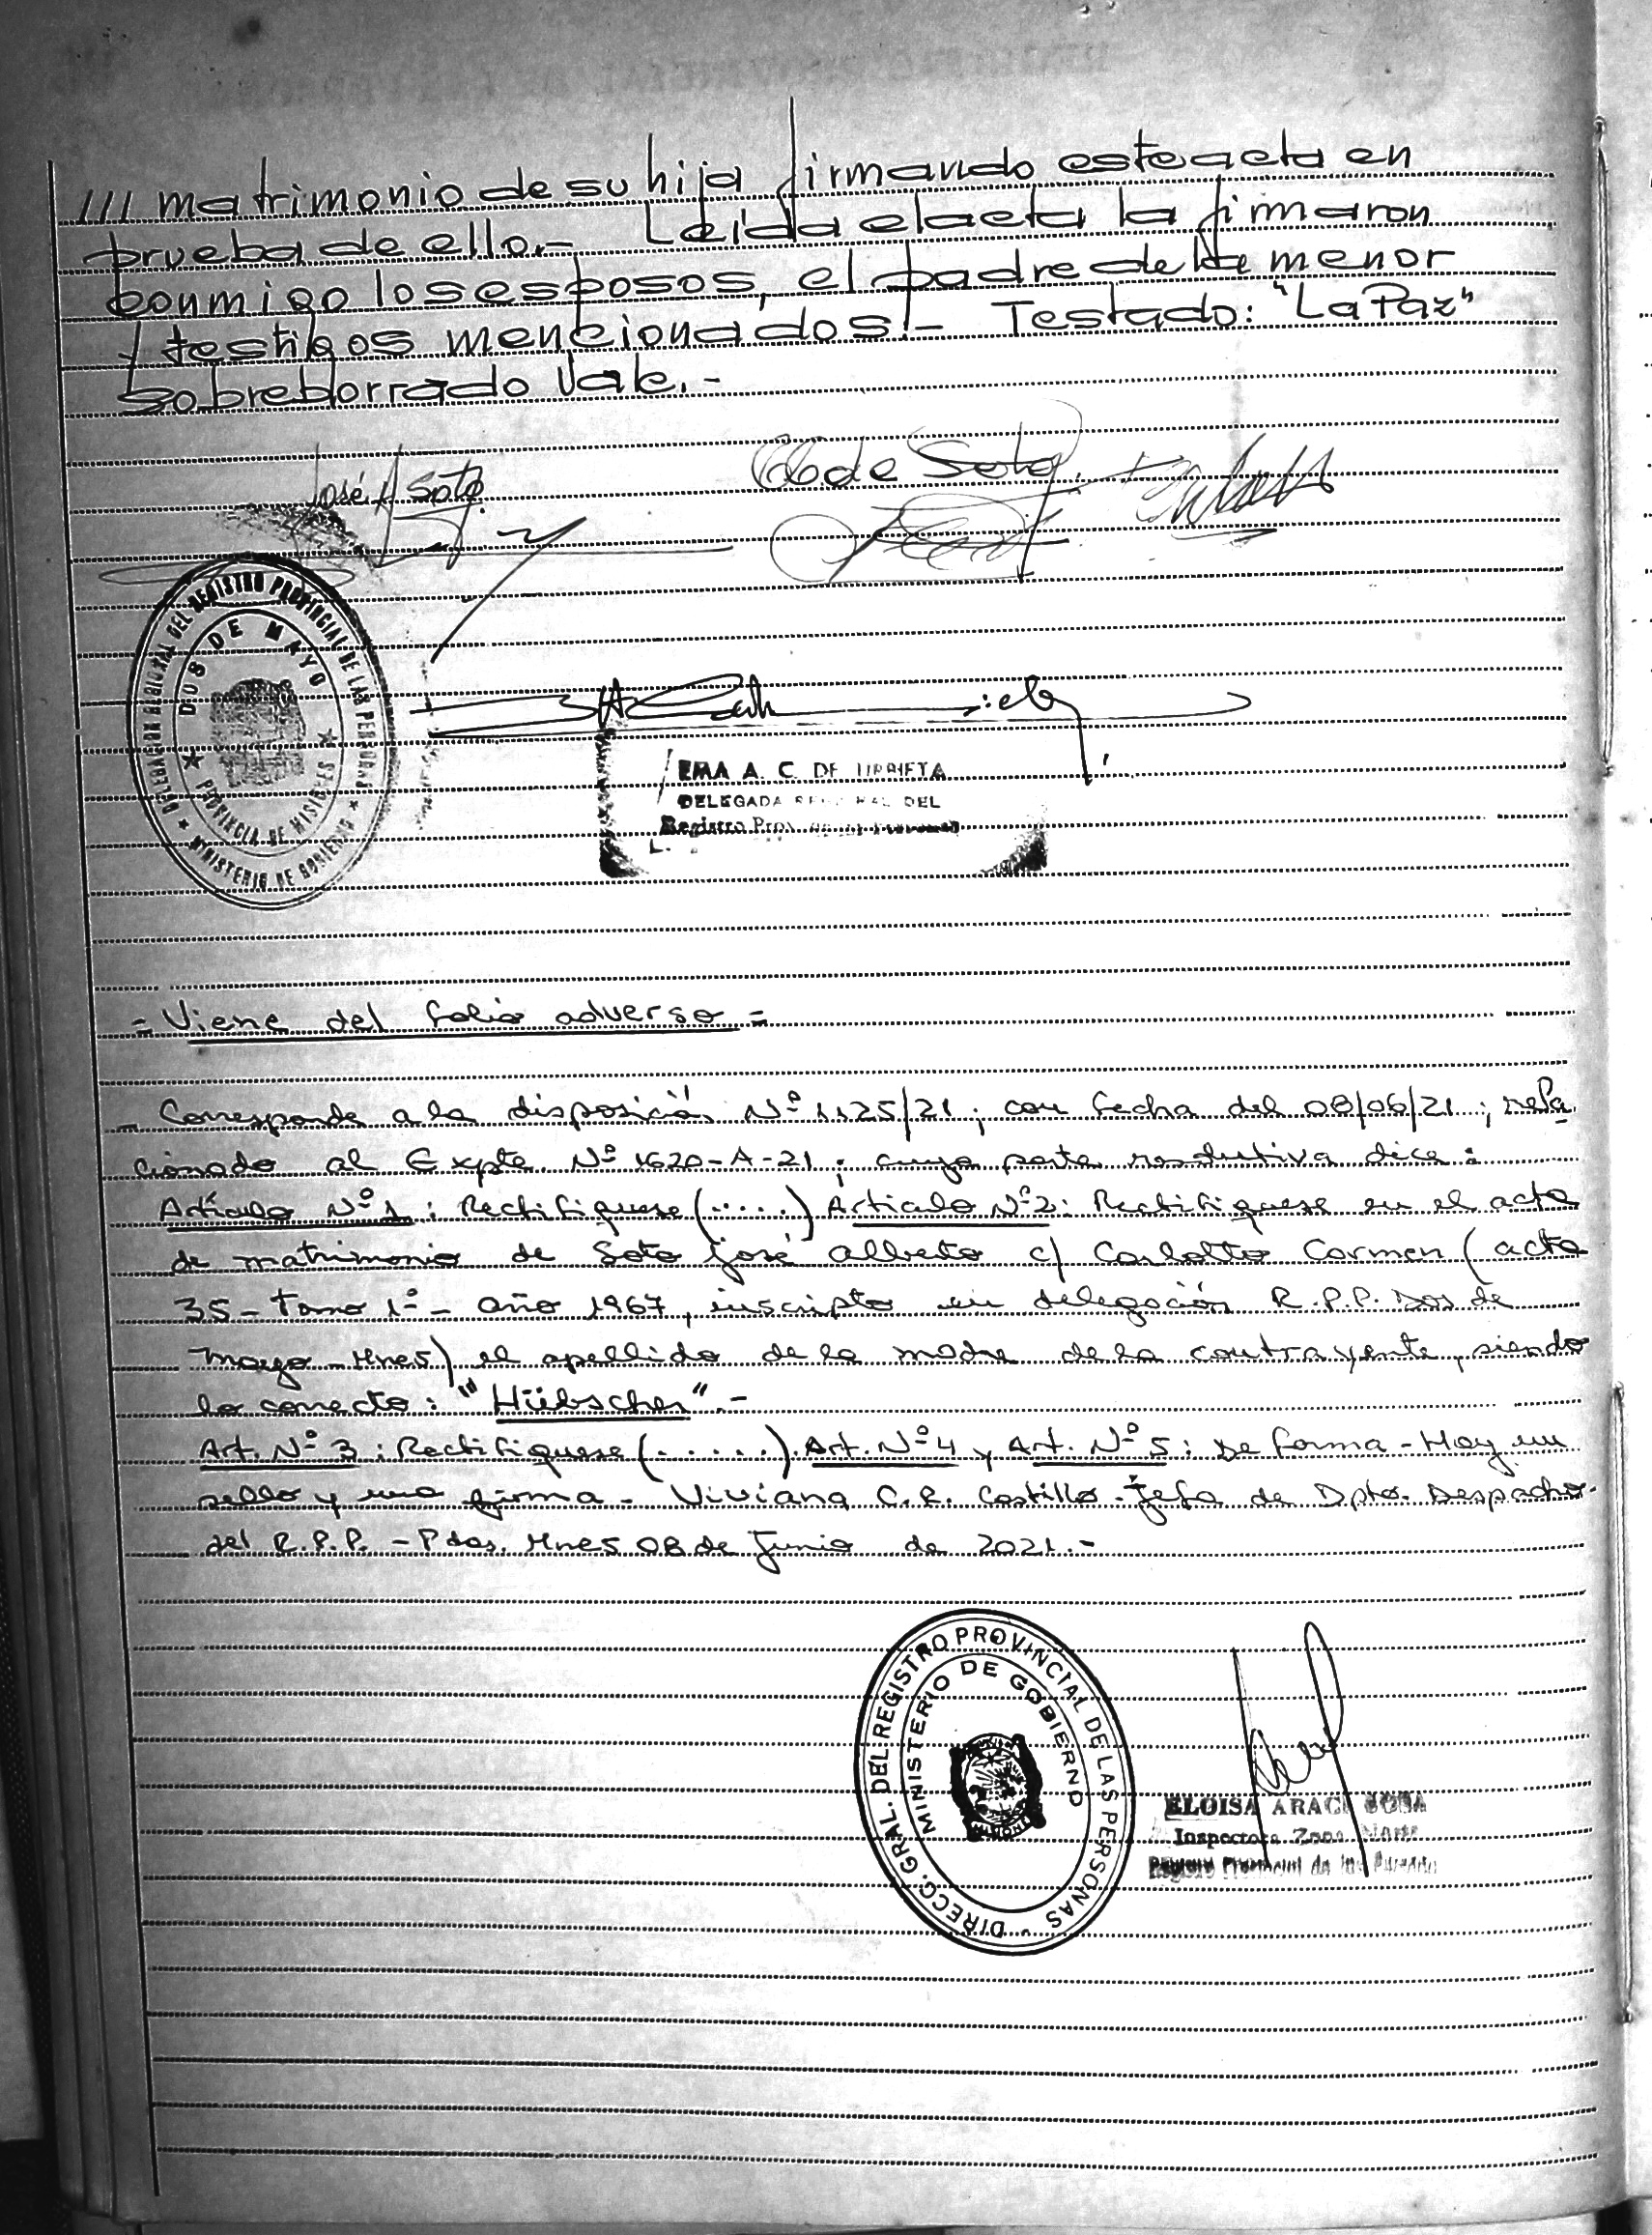 /// matrimonio de su hija firmando este acta en
prueba de ello.- Leida el acta la firmaron
conmigo los esposos, el padre de la menor
y testigos mencionados.- Testado: "La Paz"
Sobreborrado Vale.-
José A Soto
de Soto
DELEGACION REGIONAL DEL REGISTRO PROVINCIAL DE LAS PERSONAS
DOS DE MAYO
PROVINCIA DE MISIONES
MINISTERIO DE GOBIERNO
EMA A. C. DE URRIETA
DELEGADA REGIONAL DEL
Registro Prov. de las Personas
= Viene del folio adverso =
- Corresponde a la disposición Nº 1125/21; con fecha del 08/06/21; rela
cionado al Expte. Nº 1620-A-21; cuya parte resolutiva dice:
Artículo Nº 1: Rectifiquese (.....) Articulo Nº 2: Rectifiquese en el acta
de matrimonio de Soto José Alberto c/ Carlotto Carmen (acta
35 - Tomo 1º - año 1967, inscripto en delegación R.P.P. Dos de
Mayo - Mnes) el apellido de la madre de la contrayente, siendo
lo correcto: "Hübscher".-
Art. Nº 3: Rectifiquese (......). Art. Nº 4 y Art. Nº 5: De forma - Hay un
sello y una firma - Viviana C.R. Castillo - Jefa de Dpto. Despacho
del R.P.P. - Pdas. Mnes 08 de Junio de 2021.-
DIRECC. GRAL. DEL REGISTRO PROVINCIAL DE LAS PERSONAS -
MINISTERIO DE GOBIERNO
ELOISA ARACI SOSA
Inspectora Zona Norte
Registro Provincial de las Personas